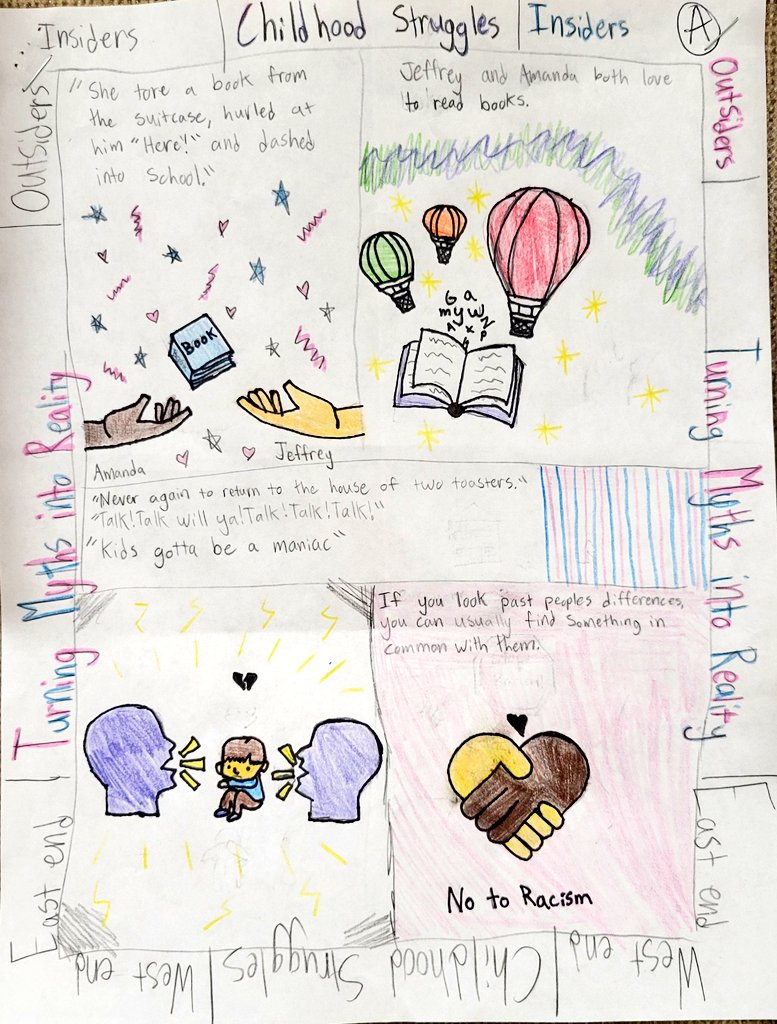 Insiders
Childhood Struggles
Insiders
A
Outsiders
Outsiders
"She tore a book from
the suitcase, hurled at
him "Here!" and dashed
into School."
Jeffrey and Amanda both love
to read books.
Book
G a
m y w
A x z
P
Amanda
Jeffrey
Turning Myths into Reality
Turning Myths into Reality
"Never again to return to the house of two toasters."
"Talk! Talk will ya! Talk! Talk! Talk!"
"Kids gotta be a maniac"
If you look past peoples differences,
you can usually find Something in
common with them.
No to Racism
East end
East end
West end
Struggles
Childhood
West end